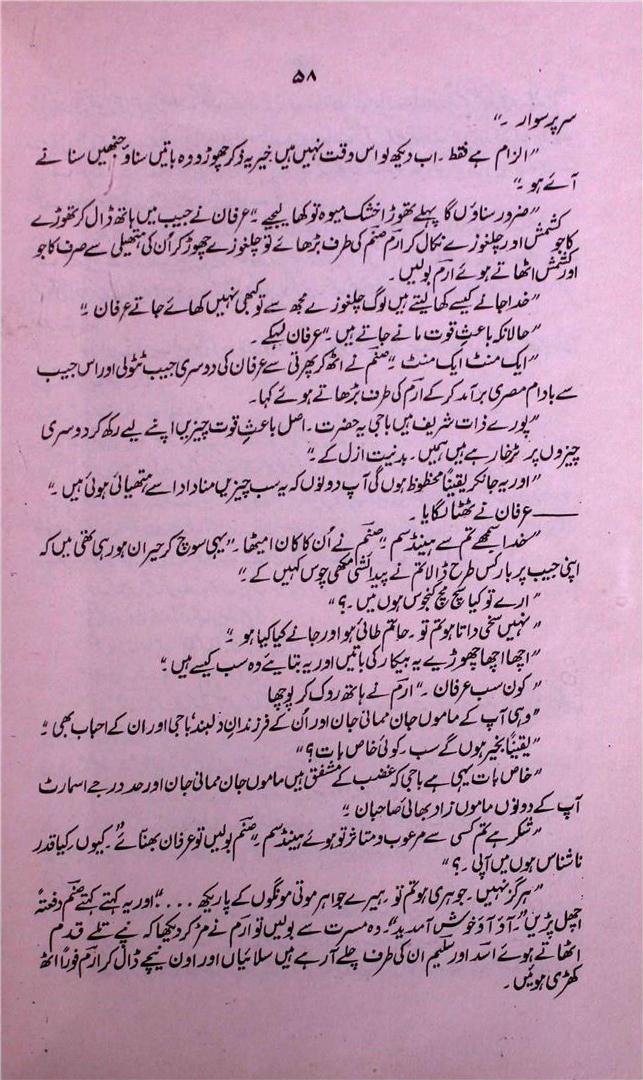 ۵۸
سر پر سوار ۔"
"الزام ہے فقط ۔ اب دیکھ لو اس وقت نہیں ہیں خیر یہ ذکر چھوڑ دو وہ باتیں سناؤ جنھیں سنانے
آئے ہو ۔"
"ضرور سناؤں گا پہلے تھوڑا خشک میوہ تو کھا لیجیے ۔" عرفان نے جیب میں ہاتھ ڈال کر تھوڑے
کاجو کشمش اور چلغوزے نکال کر ارم صنم کی طرف بڑھائے تو چلغوزے چھوڑ کر اُن کی ہتھیلی سے صرف کاجو
اور کشمش اٹھاتے ہوئے ارم بولیں ۔
"خدا جانے کیسے کھا لیتے ہیں لوگ چلغوزے مجھ سے تو کبھی نہیں کھائے جاتے عرفان ۔"
"حالانکہ باعثِ قوت مانے جاتے ہیں ۔" عرفان لہکے ۔
"ایک منٹ ایک منٹ ۔" صنم نے اٹھ کر پھرتی سے عرفان کی دوسری جیب ٹٹولی اور اس جیب
سے بادام مصری برآمد کر کے ارم کی طرف بڑھاتے ہوئے کہا ۔
"پورے ذات شریف ہیں باجی یہ حضرت ۔ اصل باعثِ قوت چیزیں اپنے لیے رکھ کر دوسری
چیزوں پر ٹرخا رہے ہیں ہمیں ۔ بدنیت ازل کے ۔"
"اور یہ جانکر یقیناً محظوظ ہوں گی آپ دونوں کہ یہ سب چیزیں منا دادا سے ہتھیائی ہوئی ہیں ۔"
—— عرفان نے ٹھٹا لگایا ۔
"خدا سمجھے تم سے ہینڈسم ۔" صنم نے اُن کا کان امیٹھا ۔ "یہی سوچ کر حیران ہو رہی تھی میں کہ
اپنی جیب پر بار کس طرح ڈالا تم نے پیدائشی مکھی چوس کہیں کے ۔"
"ارے تو کیا سچ مچ کنجوس ہوں میں ۔؟"
"نہیں سخی داتا ہو تم تو ۔ حاتم طائی ہو اور جانے کیا کیا ہو ۔"
"اچھا اچھا چھوڑیے یہ بیکار کی باتیں اور یہ بتایئے وہ سب کیسے ہیں ۔"
"کون سب عرفان ۔" ارم نے ہاتھ روک کر پوچھا
"وہی آپ کے ماموں جان ممانی جان اور اُن کے فرزندانِ دلبند باجی اور ان کے احباب بھی ۔"
"یقیناً بخیر ہوں گے سب ۔ کوئی خاص بات؟"
"خاص بات یہی ہے باجی کہ غضب کے مشفق ہیں ماموں جان ممانی جان اور حد درجے اسمارٹ
آپ کے دونوں ماموں زاد بھائی صاحبان ۔"
"شکر ہے تم کسی سے مرعوب و متاثر تو ہوئے ہینڈسم ۔" صنم بولیں تو عرفان بھنائے "کیوں ۔ کیا قدر
ناشناس ہوں میں آپی ۔؟"
"ہرگز نہیں ۔ جوہری ہو تم تو ۔ ہیرے جواہر موتی مونگوں کے پاریکھ ...." اور یہ کہتے کہتے صنم دفعتہً
اچھل پڑیں "آؤ آؤ خوش آمدید" ۔ وہ مسرت سے بولیں تو ارم نے مڑ کر دیکھا کہ نپے تلے قدم
اٹھاتے ہوئے اسد اور سلیم ان کی طرف چلے آ رہے ہیں سلائیاں اور اون نیچے ڈال کر ارم فوراً اٹھ
کھڑی ہوئیں ۔